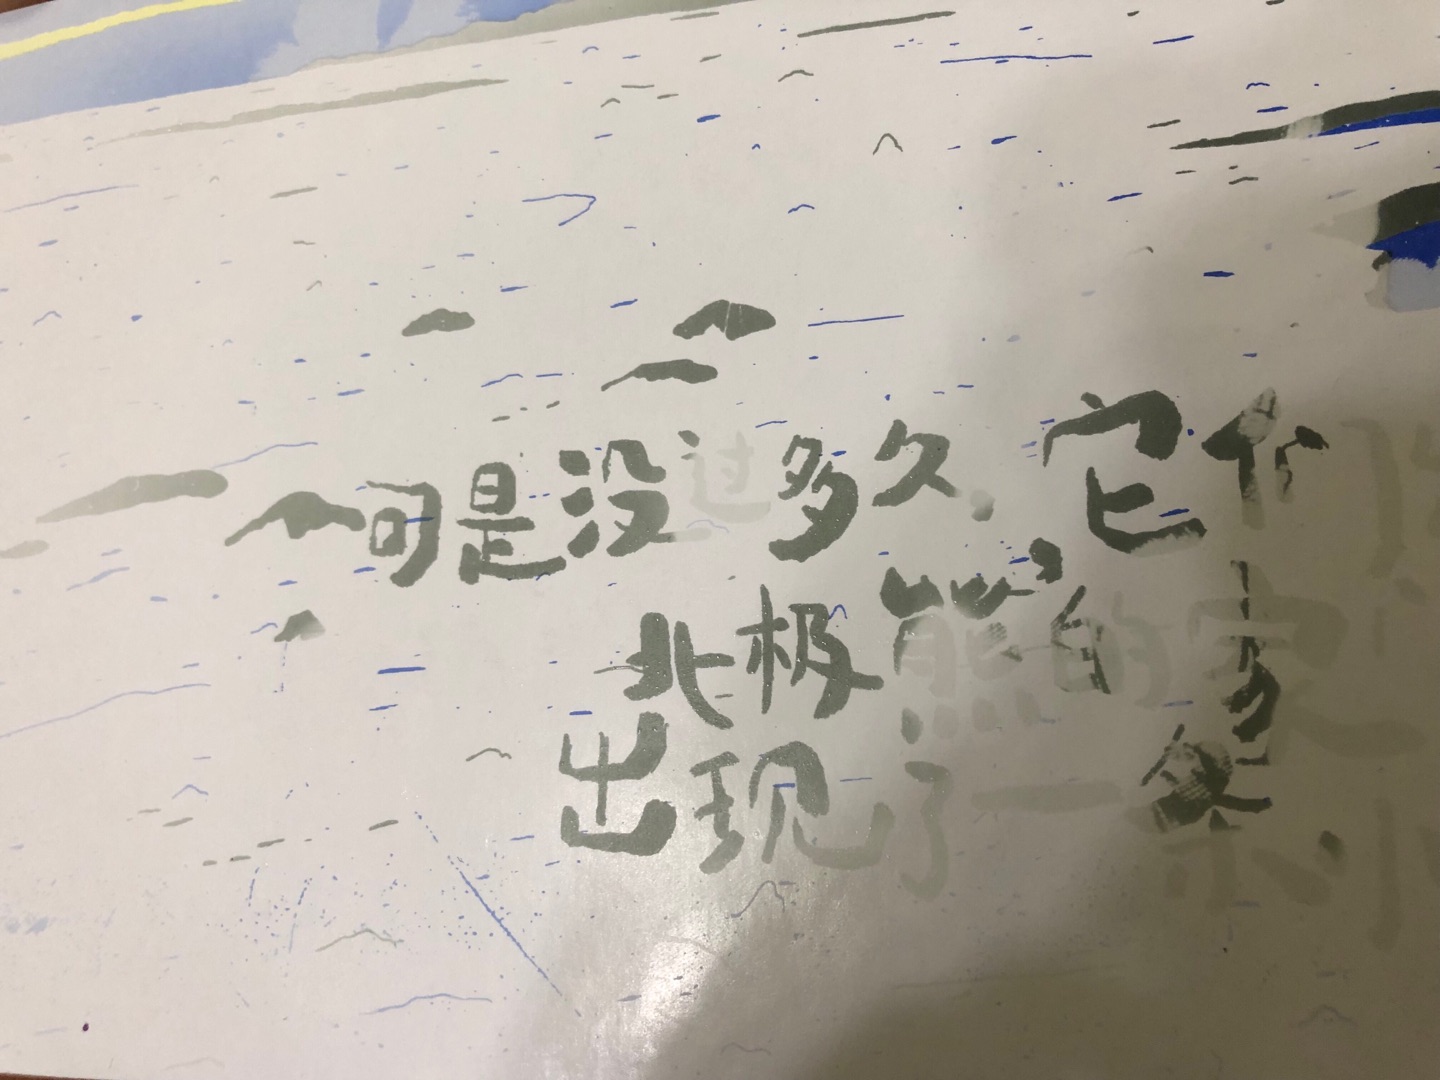 可是没过多久，它们
北极熊的家
出现了一条